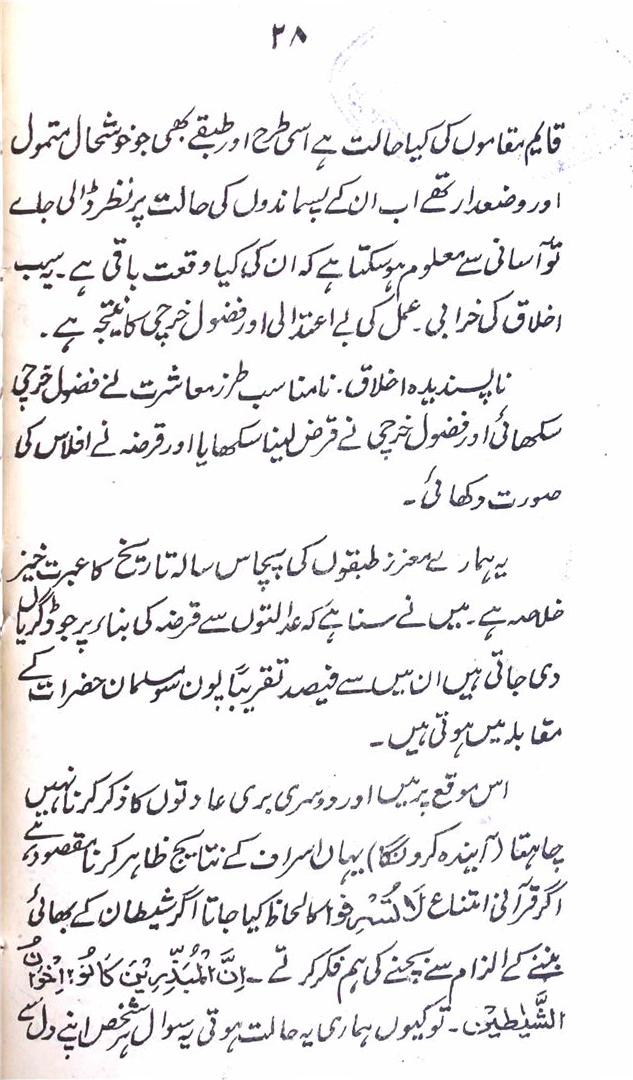 ۲۸
قایم مقاموں کی کیا حالت ہے اسی طرح اور طبقے بھی جو خوشحال متمول
اور وضعدار تھے اب ان کے پسماندوں کی حالت پر نظر ڈالی جاے
تو آسانی سے معلوم ہو سکتا ہے کہ ان کی کیا وقعت باقی ہے ۔ یہ سب
اخلاق کی خرابی ۔ عمل کی بے اعتدالی اور فضول خرچی کا نتیجہ ہے ۔
ناپسندیدہ اخلاق ۔ نامناسب طرز معاشرت نے فضول خرچی
سکھائی اور فضول خرچی نے قرض لینا سکھایا اور قرضہ نے افلاس کی
صورت دکھائی ۔
یہ ہمارے معزز طبقوں کی پچاس سالہ تاریخ کا عبرت خیز
خلاصہ ہے ۔ میں نے سنا ہے کہ عدالتوں سے قرضہ کی بناء پر جو ڈگریاں
دی جاتی ہیں ان میں سے فیصد تقریباً پون سو مسلمان حضرات کے
مقابلہ میں ہوتی ہیں ۔
اس موقع پر میں اور دوسری بری عادتوں کا ذکر کرنا نہیں
چاہتا (آیندہ کرونگا) یہاں اسراف کے نتایج ظاہر کرنا مقصود ہے
اگر قرآنی امتناع لَا تُسْرِفُوا کا لحاظ کیا جاتا اگر شیطان کے بھائی
بننے کے الزام سے بچنے کی ہم فکر کرتے ۔ اِنَّ الْمُبَذِّرِیْنَ کَانُوْا اِخْوَانُ
الشَّیٰطِیْن ۔ تو کیوں ہماری یہ حالت ہوتی یہ سوال ہر شخص اپنے دل سے